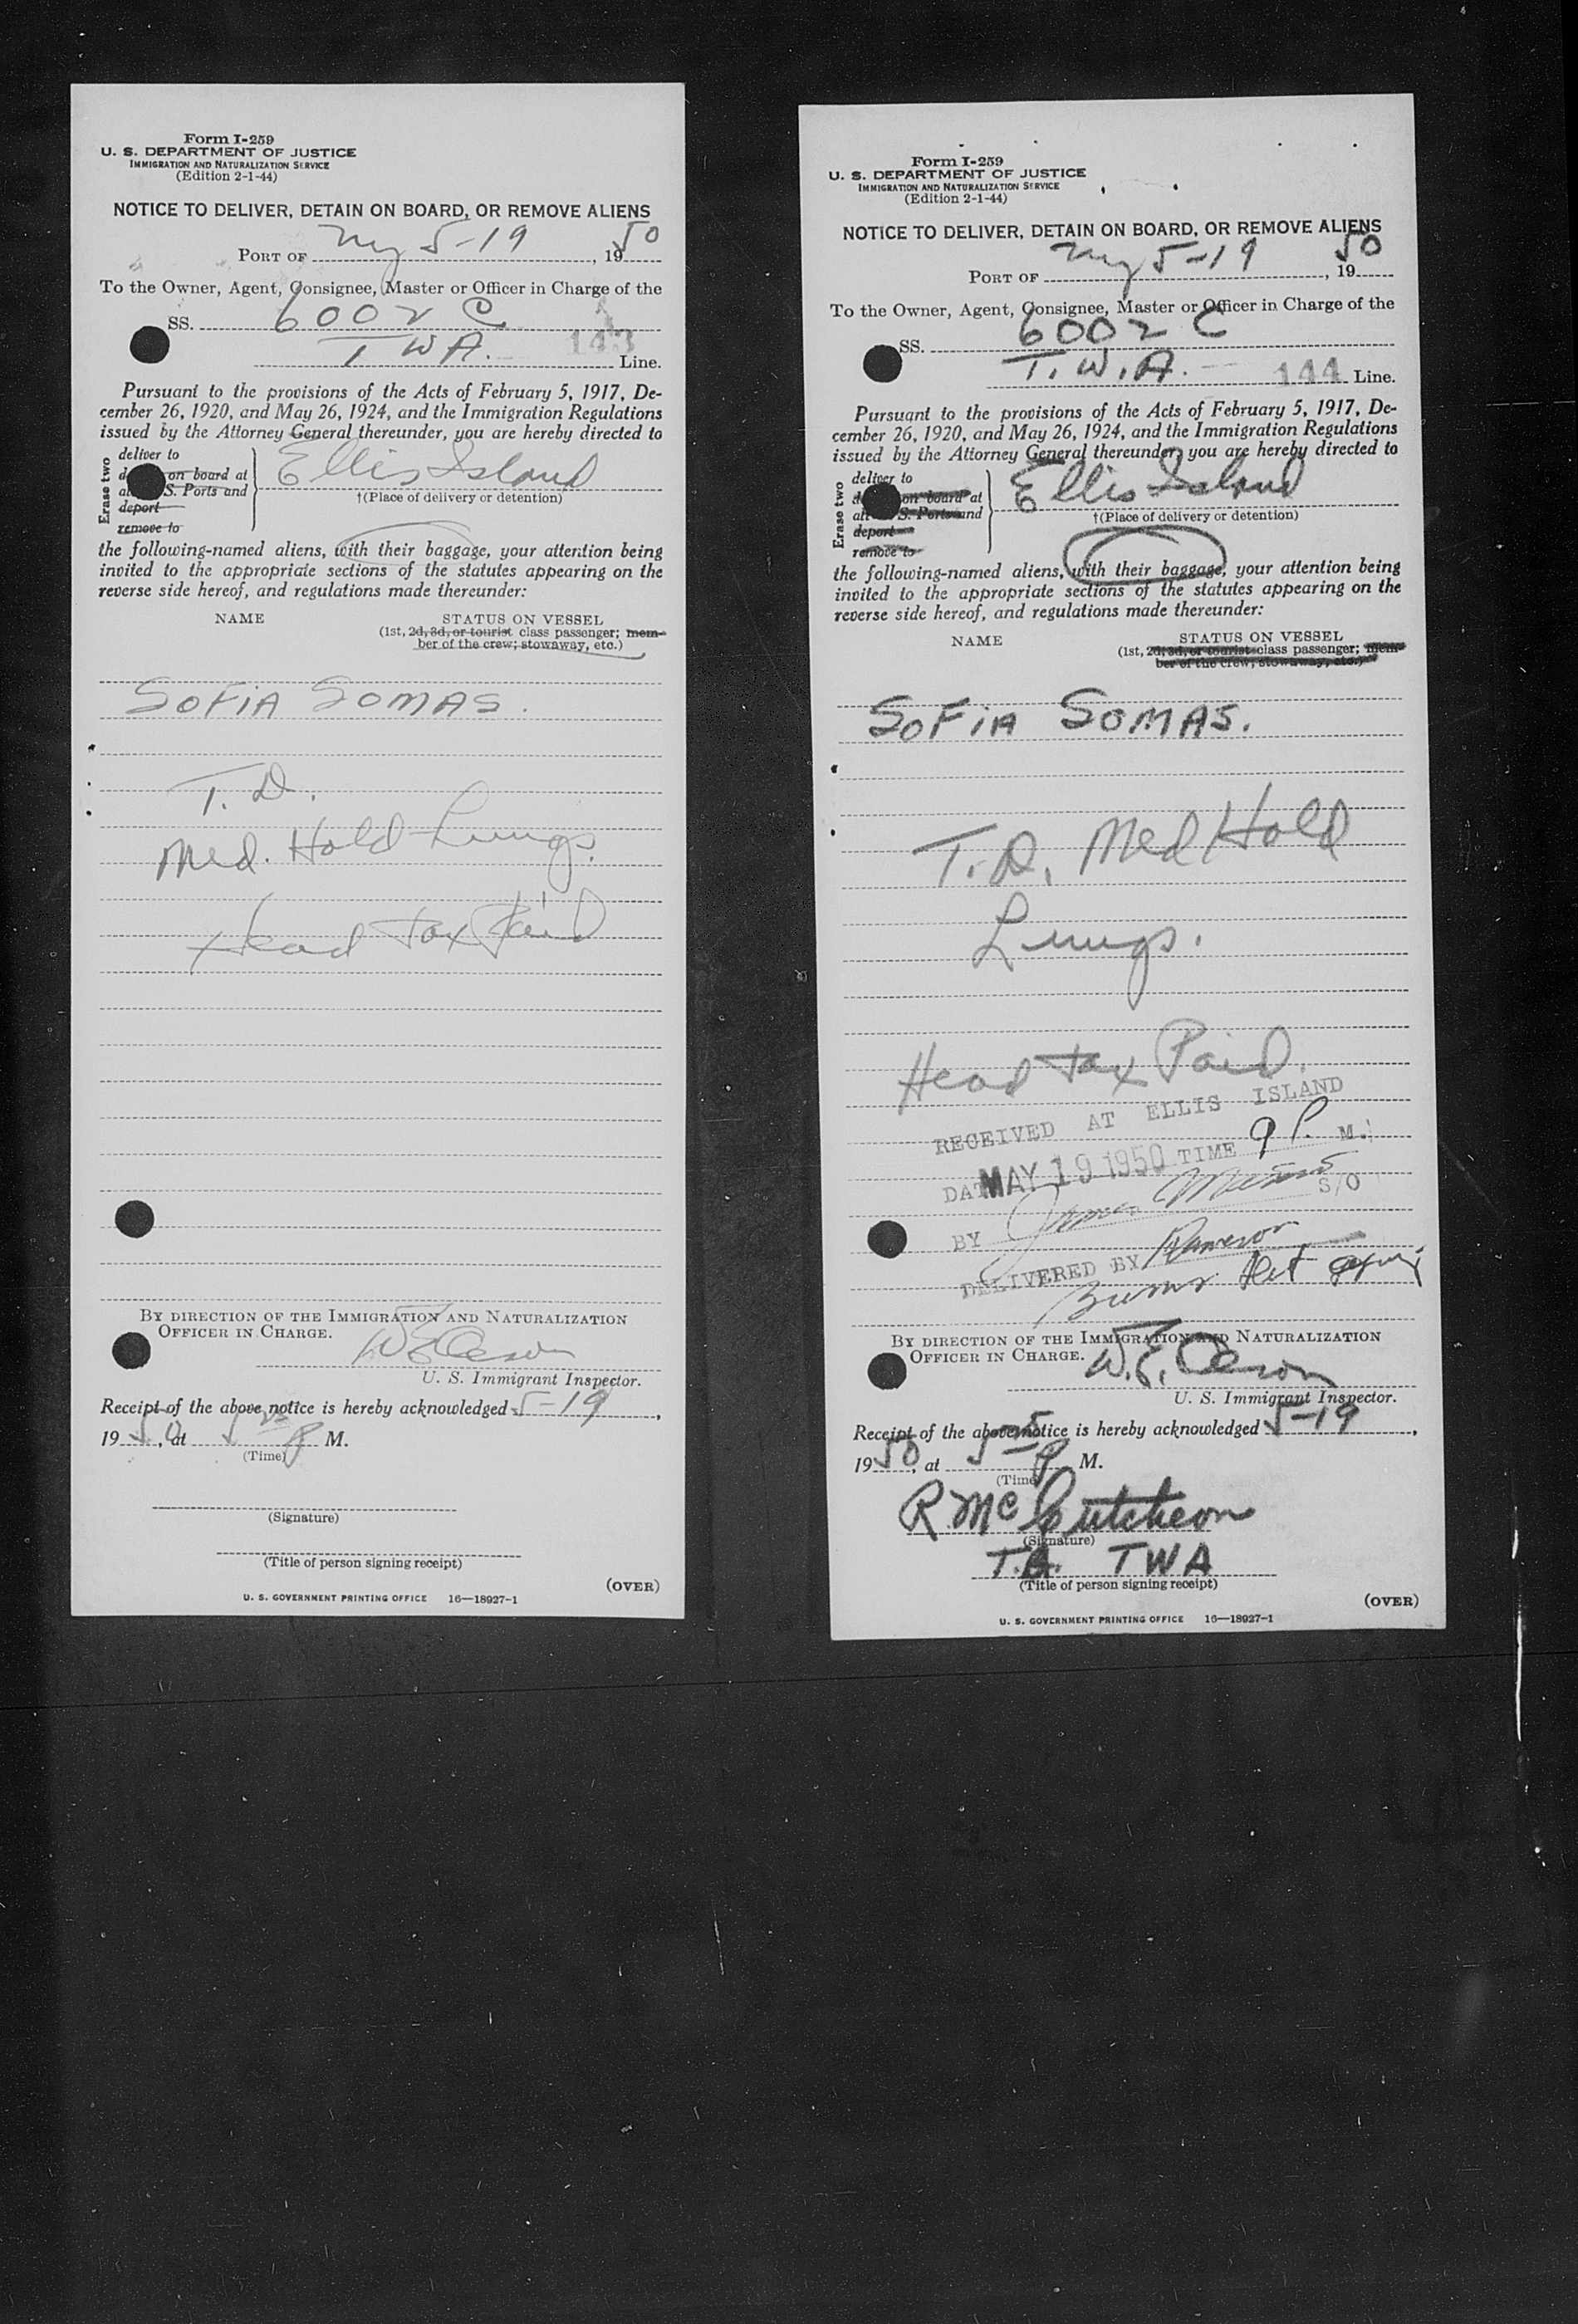 Form I-259
U. S. DEPARTMENT OF JUSTICE
IMMIGRATION AND NATURALIZATION SERVICE
(Edition 2-1-44)
NOTICE TO DELIVER, DETAIN ON BOARD, OR REMOVE ALIENS
PORT OF NY 5-19, 1950
To the Owner, Agent, Consignee, Master or Officer in Charge of the
SS. 6002 C
T W A. 143 Line.
Pursuant to the provisions of the Acts of February 5, 1917, De-
cember 26, 1920, and May 26, 1924, and the Immigration Regulations
issued by the Attorney General thereunder, you are hereby directed to
Erase two
deliver to
on board at
S. Ports and
deport
remove to
Ellis Island
†(Place of delivery or detention)
the following-named aliens, with their baggage, your attention being
invited to the appropriate sections of the statutes appearing on the
reverse side hereof, and regulations made thereunder:
NAME STATUS ON VESSEL
(1st, 2d, 3d, or tourist class passenger; mem-
ber of the crew; stowaway, etc.)
SOFIA SOMAS.
T. D.
Med. Hold Lungs.
Head Tax Paid
BY DIRECTION OF THE IMMIGRATION AND NATURALIZATION
OFFICER IN CHARGE.
U. S. Immigrant Inspector.
Receipt of the above notice is hereby acknowledged 5-19,
1950, at 5 P M.
(Time)
(Signature)
(Title of person signing receipt)
(OVER)
U. S. GOVERNMENT PRINTING OFFICE 16—18927-1
Form I-259
U. S. DEPARTMENT OF JUSTICE
IMMIGRATION AND NATURALIZATION SERVICE
(Edition 2-1-44)
NOTICE TO DELIVER, DETAIN ON BOARD, OR REMOVE ALIENS
PORT OF NY 5-19, 1950
To the Owner, Agent, Consignee, Master or Officer in Charge of the
SS. 6002 C
T. W. A. 144 Line.
Pursuant to the provisions of the Acts of February 5, 1917, De-
cember 26, 1920, and May 26, 1924, and the Immigration Regulations
issued by the Attorney General thereunder, you are hereby directed to
Erase two
deliver to
on board at
S. Ports and
deport
remove to
Ellis Island
†(Place of delivery or detention)
the following-named aliens, with their baggage, your attention being
invited to the appropriate sections of the statutes appearing on the
reverse side hereof, and regulations made thereunder:
NAME STATUS ON VESSEL
(1st, 2d, 3d, or tourist class passenger; mem-
ber of the crew; stowaway, etc.)
SOFIA SOMAS.
T. D. Med Hold
Lungs.
Head Tax Paid.
RECEIVED AT ELLIS ISLAND
DATE MAY 19 1950 TIME 9 P. M.
S/O
BY James
DELIVERED BY
Burns Det
BY DIRECTION OF THE IMMIGRATION AND NATURALIZATION
OFFICER IN CHARGE. W. E.
U. S. Immigrant Inspector.
Receipt of the above notice is hereby acknowledged 5-19,
1950, at 5 P M.
(Time)
R. McCutcheon
(Signature)
T.A. TWA
(Title of person signing receipt)
(OVER)
U. S. GOVERNMENT PRINTING OFFICE 16—18927-1